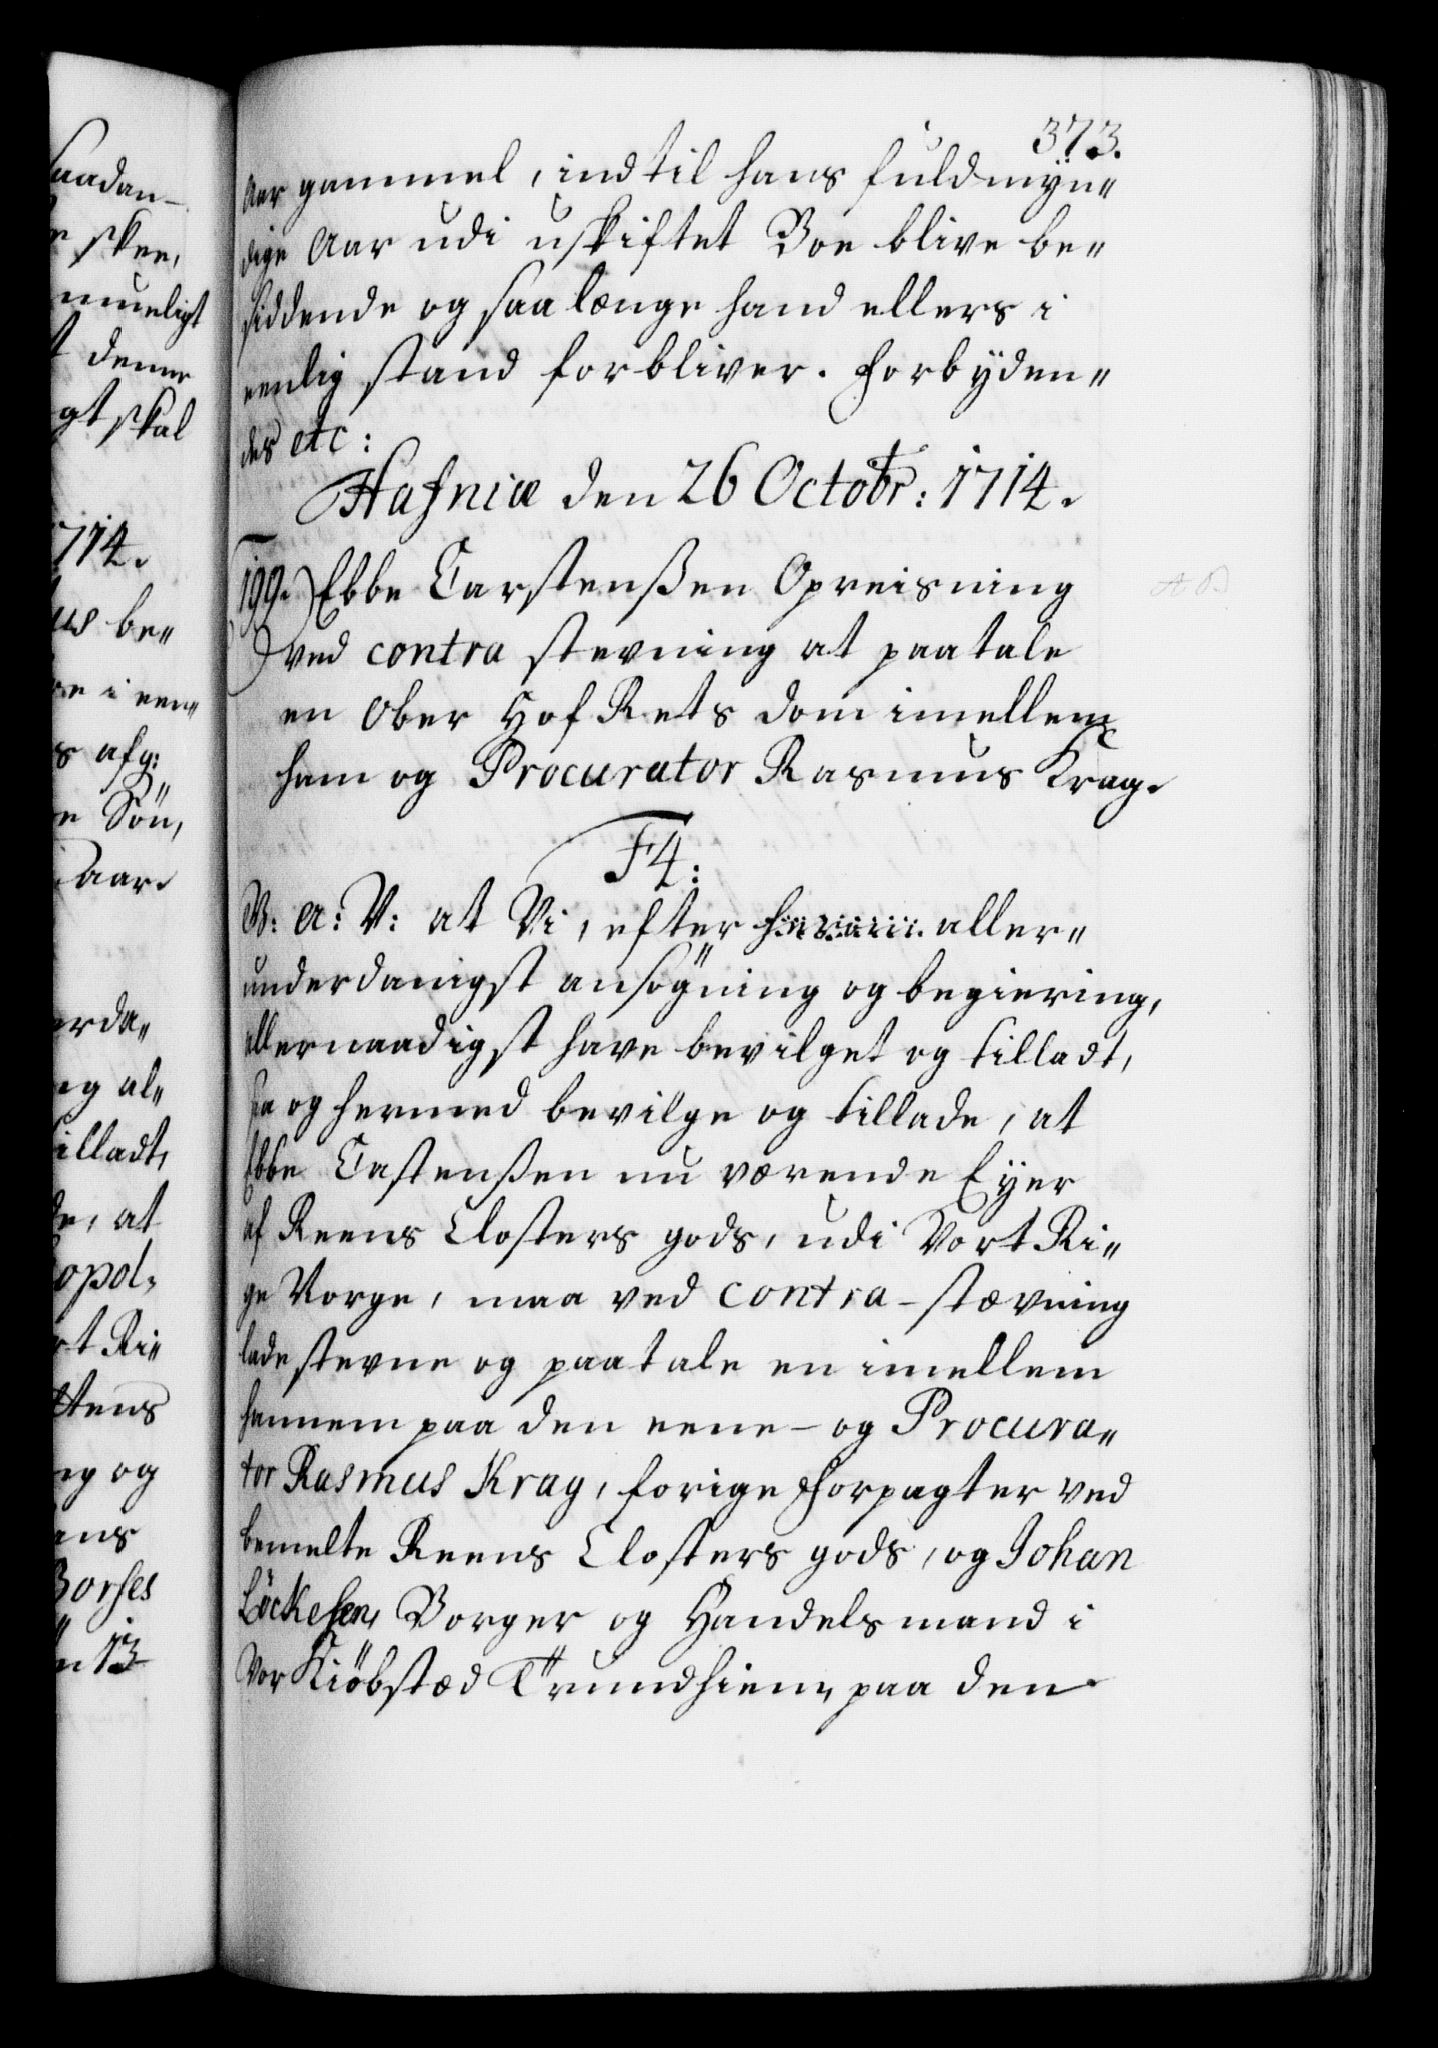 saadan-
skee,
mueligt
denne
gt skal
1714.
us be„
e i een„
s afg:
e Sön,
aar
erda„
ng al„
tilladt,
de, at
opol,
rt Ri„
ttens
ng og
ans
Borses
n 13
373.
Aar gammel, indtil hans fuldmyn„
dige Aar udi uskiftet Boe blive be„
siddende og saa længe hand ellers i
eenlig stand forbliver. Forbyden„
des etc:
Hafniæ den 26 Octobr: 1714.
199. Ebbe Carstenßen Opreisning
ved contra stevning at paatale
en Ober Hof Rets dom imellem
ham og Procurator Rasmus Krag.
F4:
W: A: V: at Vi, efter aller„
underdanigst ansögning og begiering,
allernaadigst have bevilget og tilladt,
saa og hermed bevilge og tillade, at
Ebbe Castenßen nu værende Eyer
af Reens Closters gods, udi Vort Ri„
ge Norge, maa ved contra-stævning
lade stevne og paatale en imellem
hannem paa den eene- og Procura„
tor Rasmus Krag, forige Forpagter ved
bemelte Reens Closters gods, og Johan
Löckesen, Borger og Handelsmand i
Vor Kiöbstæd Trundhiem, paa den